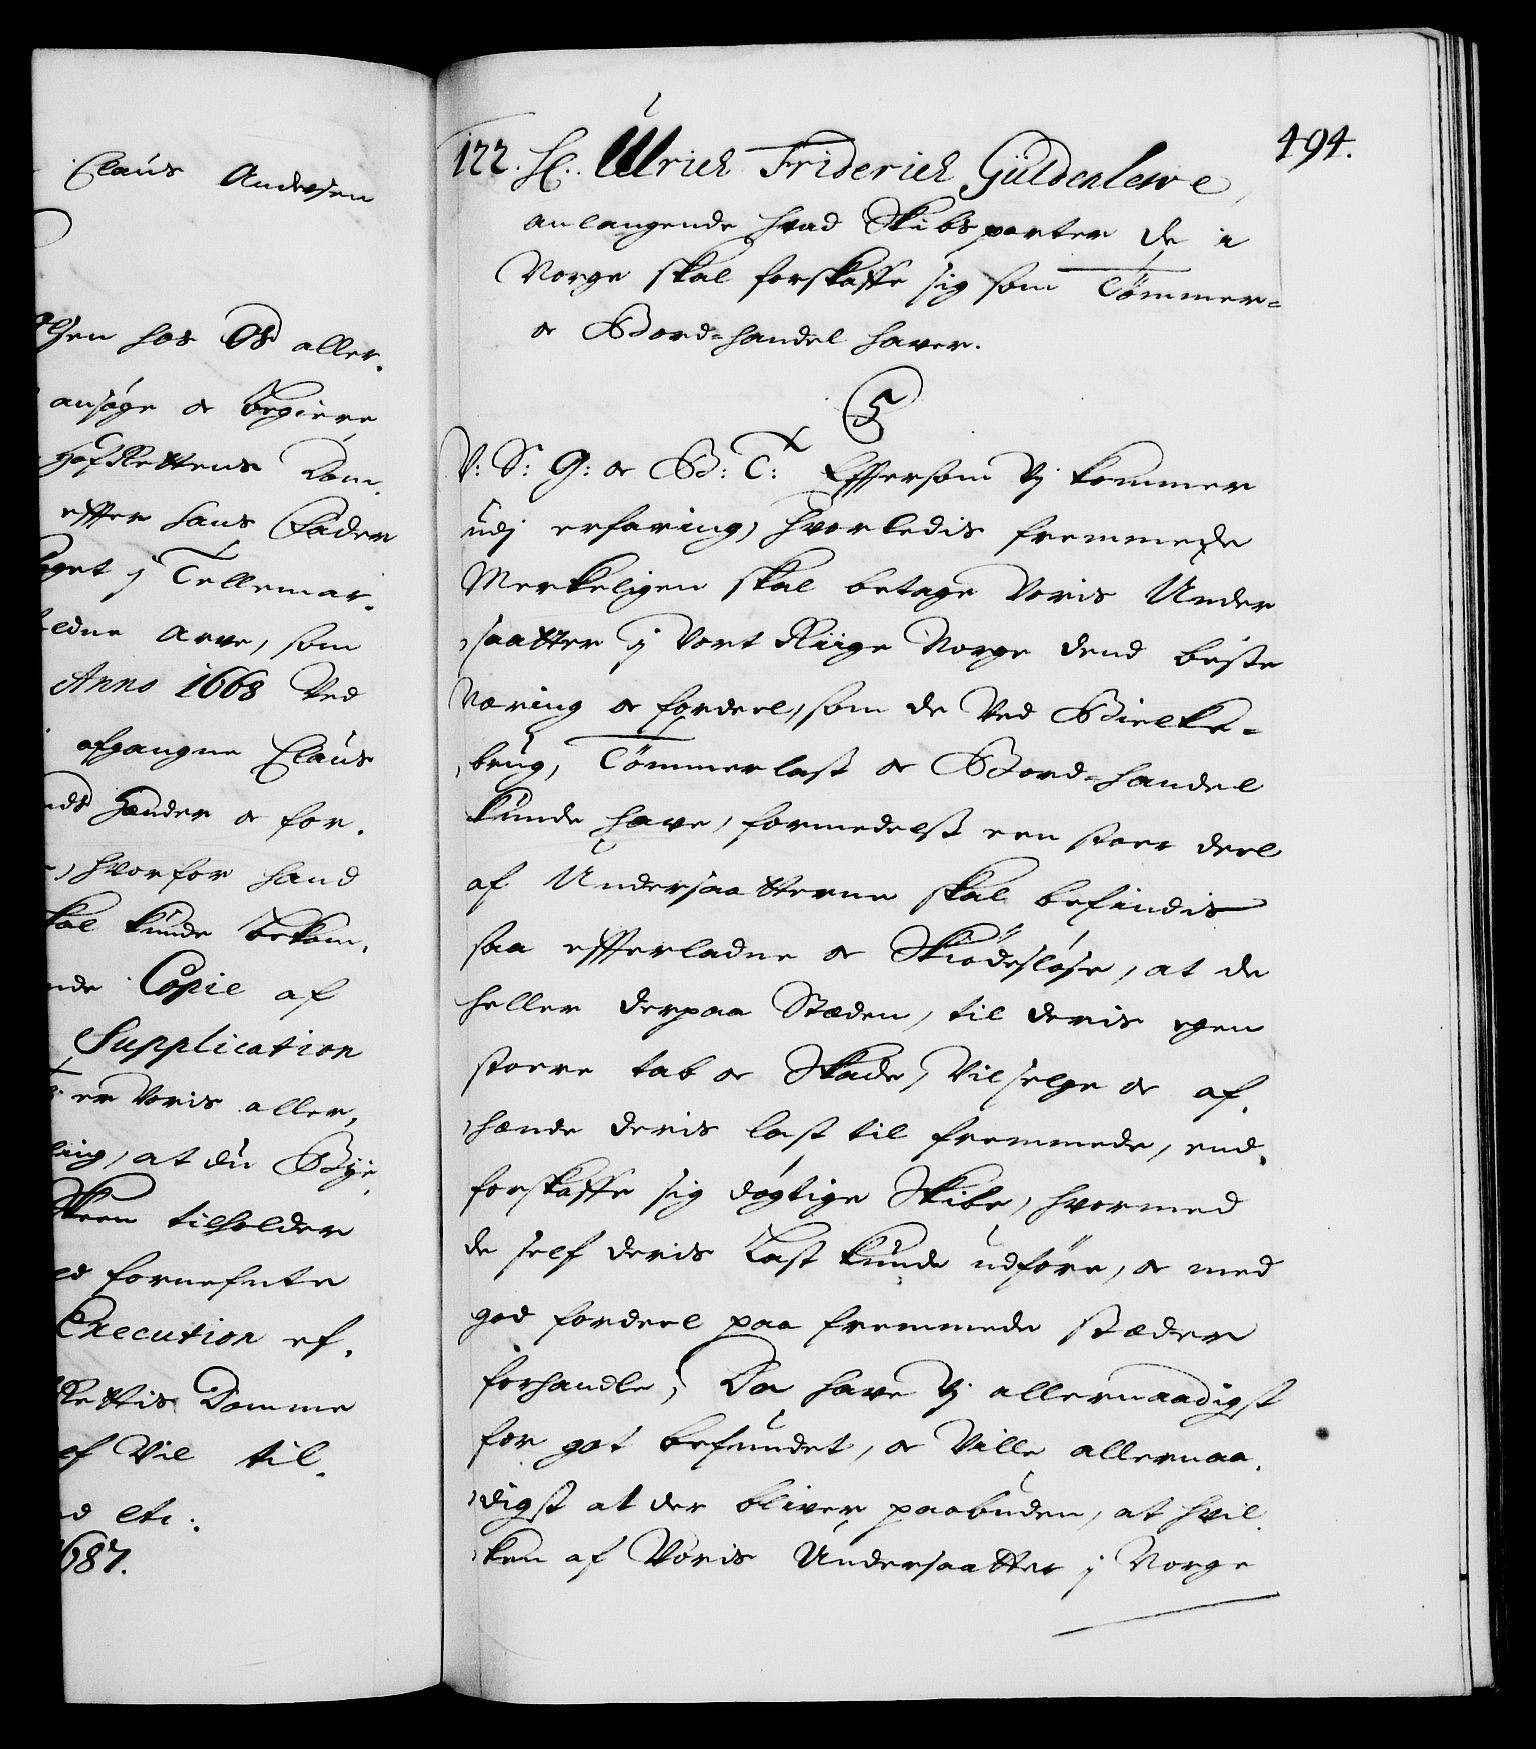 Claus Andersen
lsen hos Os aller,
ansøge oc begiere
HofRettens Dom,
effter hans Fader
get i Tellemar,
Arve, som
Anno 1668 Ved
afgangne Claus
Hænder oc for,
hvorfor hand
kal kunde bekom,
nde Copie af
Supplication
er Voris aller,
ing, at du Bye
tilholder
fornefnte
Execution ef,
Rettis Domme
Vil til,
etc:
687.
122. H: Ulrich Friderich Güldenlewe,
494.
anlangende hvad Skibsparter de i
Norge skal forskaffe sig som Tömmer=
oc Bord=handel haver.
C5
V: S: G: oc B: T: Effersom Vj kommer
udj erfaring, hvorledis fremmede
Merkeligen skal betage Voris Under
saatter j Vort Riige Norge dend beste
Næring oc fordeel, som de Ved Bielke=
brug, Tömmerlast oc Bord=handel
kunde have, formedelst een stoer deel
af Undersaatterne skal befindis
saa effterladne oc Skiødesløse, at de
heller derpaa Stæden, til deris egen
stoere tab oc Skade, Vil selge oc af,
hænde deris last til fremmede, end,
forskaffe sig døgtige Skibe, hvormed
de self deris Last kunde udføre, oc med
god fordeel paa fremmede stæder
forhandle; Da have Vj allernaadigst
for got befundet, oc Ville allernaa,
digst at der bliver paabuden, at hvil,
ken af Voris Undersaatter j Norge